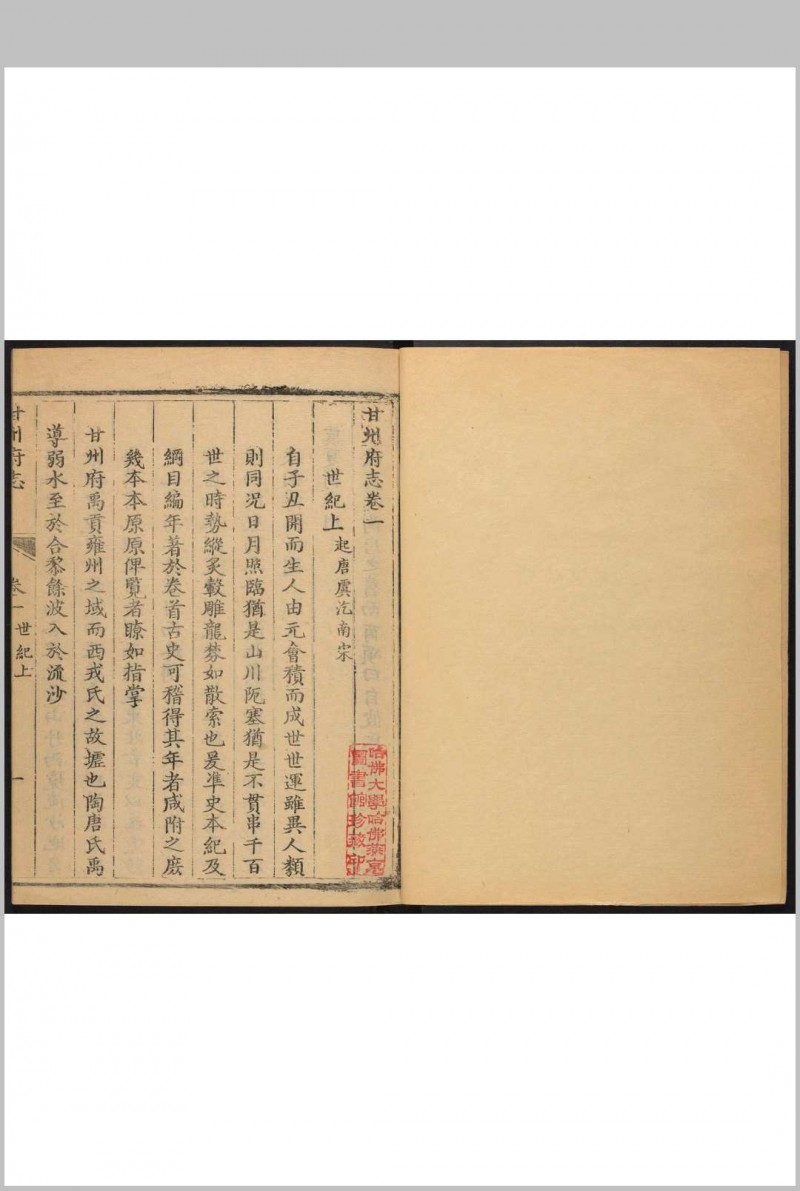 甘州府志卷一
世紀上 起唐虞汔南宋
自子丑開而生人由元會積而成世世運雖異人類
則同况日月照臨猶是山川阨塞猶是不貫串千百
世之時勢縱炙轂雕龍棼如散索也爰凖史本紀及
綱目編年著於卷首古史可稽得其年者咸附之庻
幾本本原原俾覧者瞭如指掌
甘州府禹貢雍州之域而西戎氏之故墟也陶唐氏禹
導弱水至於合黎餘波入於流沙
甘州府志
卷一 世紀上
一
哈佛大學哈佛燕京
圖書館珍藏印